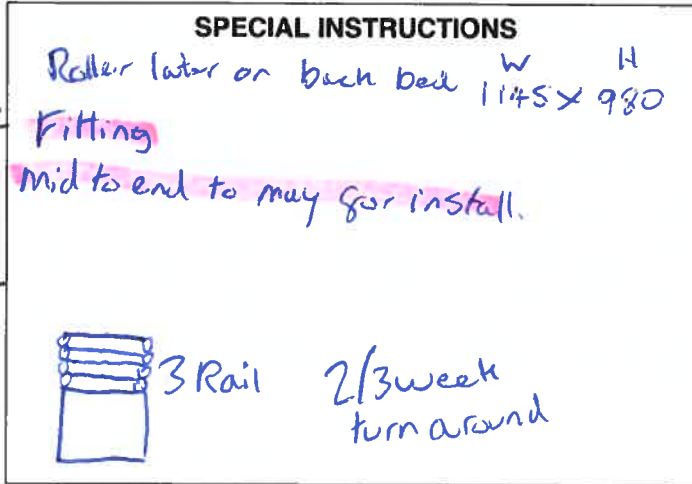 SPECIAL INSTRUCTIONS
W H
Roller later on back bed 1145 x 980
Fitting
Mid to end to may for install.
3 Rail 2/3 week
turn around